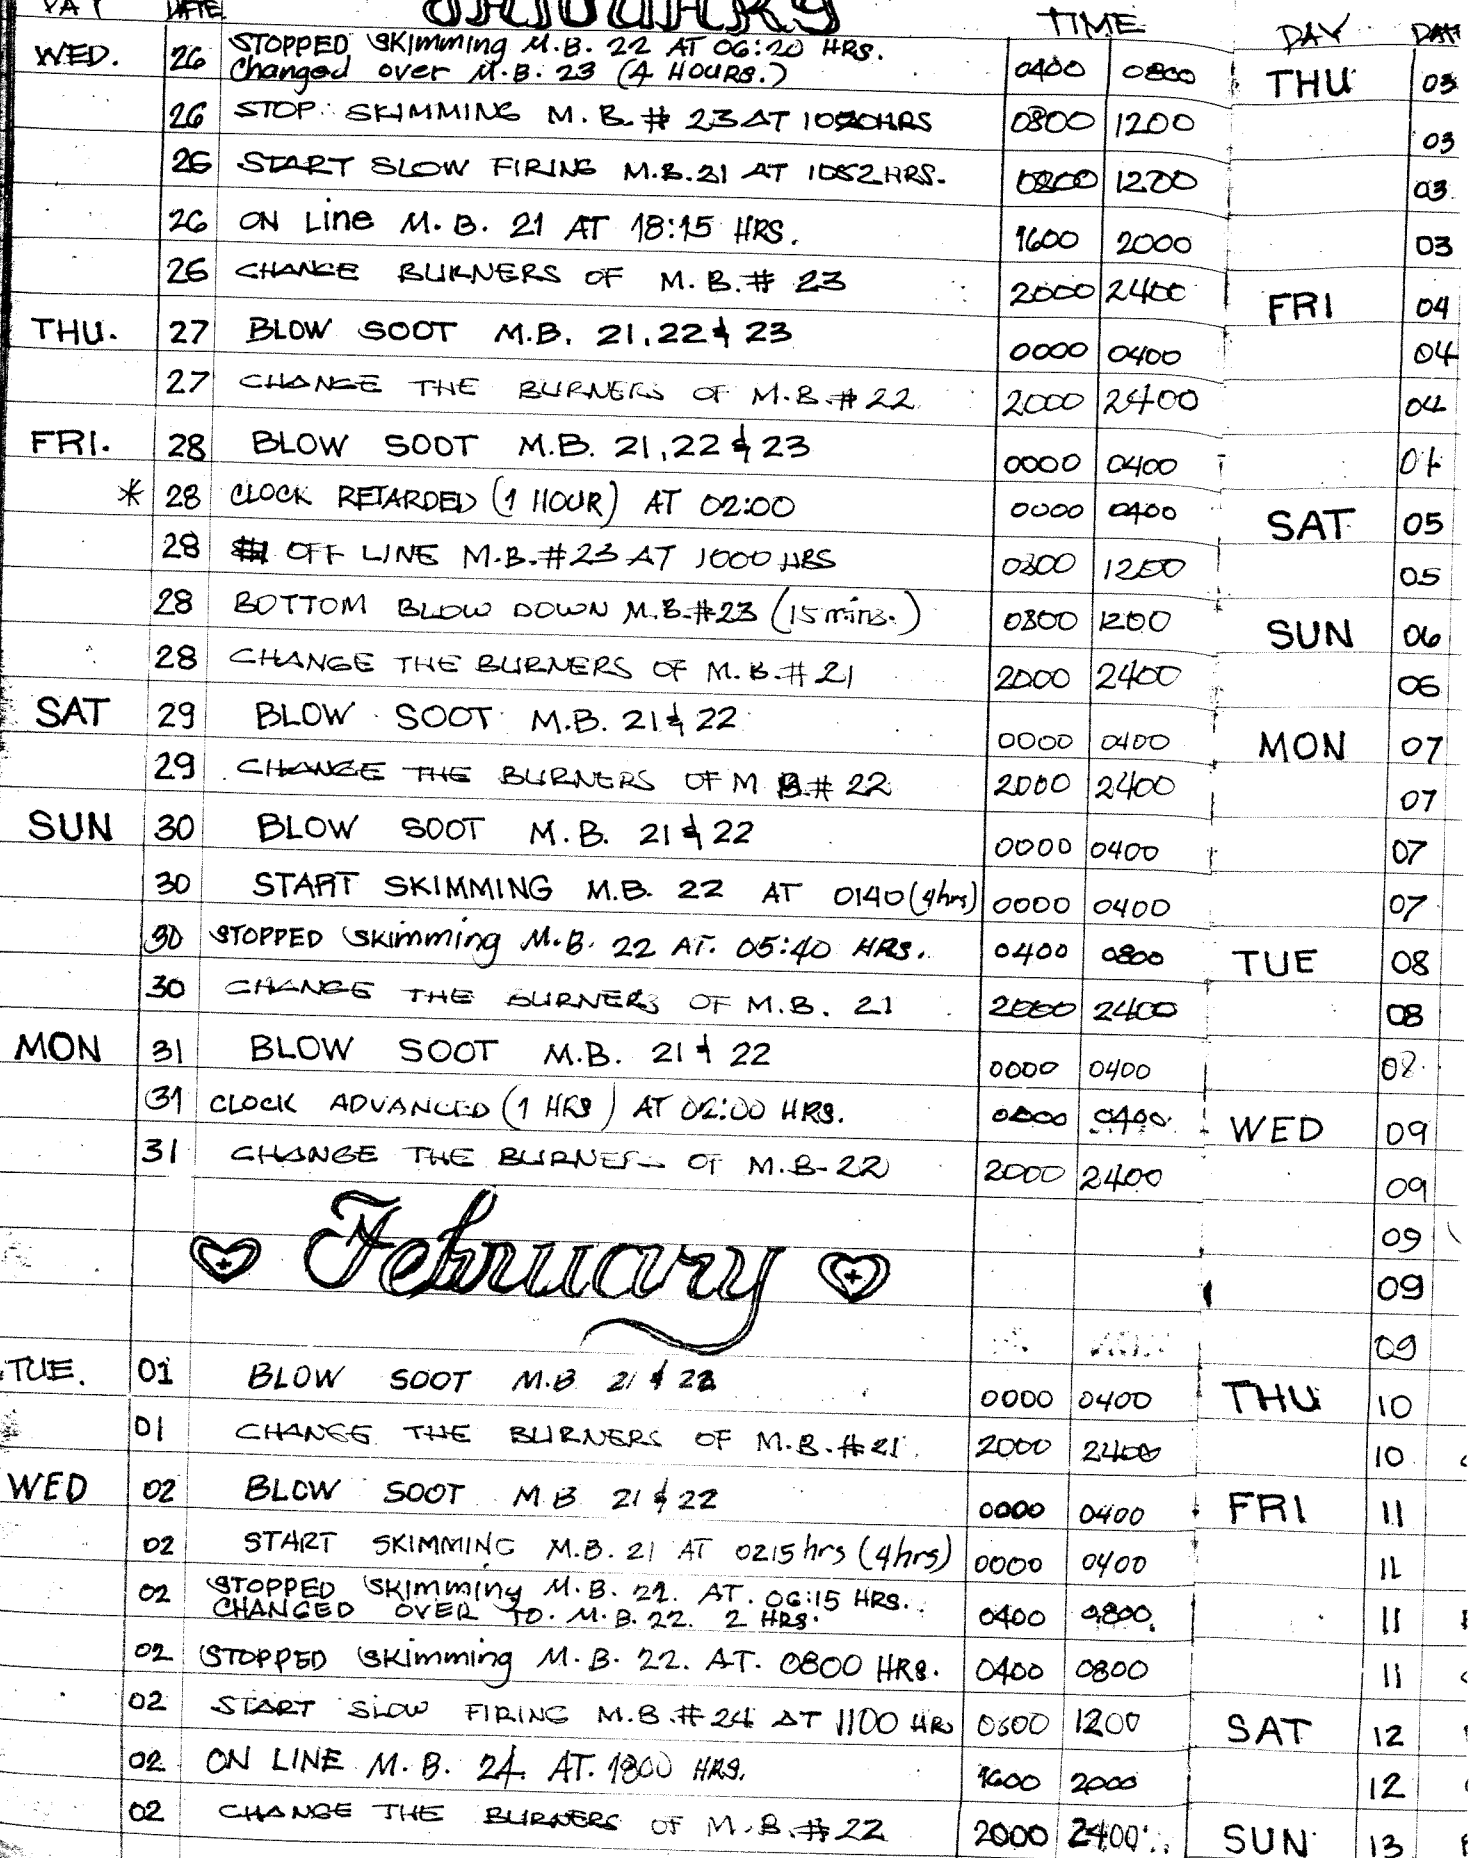 DAY DATE JANUARY TIME
WED. 26 STOPPED SKimming M.B. 22 AT 06:20 HRS. 0400 0800
Changed over M.B. 23 (4 HOURS.)
26 STOP SKIMMING M.B.# 23 AT HRS 0800 1200
26 START SLOW FIRING M.B.21 AT 1052HRS. 0800 1200
26 ON Line M.B. 21 AT 18:15 HRS. 1600 2000
26 CHANGE BURNERS OF M.B.# 23 2000 2400
THU. 27 BLOW SOOT M.B. 21,22 & 23 0000 0400
27 CHANGE THE BURNERS OF M.B.# 22 2000 2400
FRI. 28 BLOW SOOT M.B. 21,22 & 23 0000 0400
* 28 CLOCK RETARDED (1 HOUR) AT 02:00 0000 0400
28 OFF LINE M.B.#23 AT 1000 HRS 0800 1200
28 BOTTOM BLOW DOWN M.B.#23 (15 mins.) 0800 1200
28 CHANGE THE BURNERS OF M.B.#21 2000 2400
SAT 29 BLOW SOOT M.B. 21 & 22 0000 0400
29 CHANGE THE BURNERS OF M B.# 22 2000 2400
SUN 30 BLOW SOOT M.B. 21 & 22 0000 0400
30 START SKIMMING M.B. 22 AT 0140 (4hrs) 0000 0400
30 STOPPED SKimming M.B. 22 AT. 05:40 HRS. 0400 0800
30 CHANGE THE BURNERS OF M.B. 21 2000 2400
MON 31 BLOW SOOT M.B. 21 & 22 0000 0400
31 CLOCK ADVANCED (1 HRS) AT 02:00 HRS. 0000 0400
31 CHANGE THE BURNERS OF M.B-22 2000 2400
February
TUE. 01 BLOW SOOT M.B 21 & 22 0000 0400
01 CHANGE THE BURNERS OF M.B.#21. 2000 2400
WED 02 BLOW SOOT M B 21 & 22 0000 0400
02 START SKIMMING M.B. 21 AT 0215 hrs (4hrs) 0000 0400
02 STOPPED SKimming M.B. 21. AT. 06:15 HRS. 0400 0800.
CHANGED OVER TO. M.B.22. 2 HRS.
02 STOPPED SKimming M.B. 22. AT. 0800 HRS. 0400 0800
02 START SLOW FIRING M.B.#24 AT 1100 HR 0800 1200
02 ON LINE M.B. 24. AT. 1800 HRS. 1600 2000
02 CHANGE THE BURNERS OF M.B.#22 2000 2400
DAY DATE
THU 03
03
03
03
FRI 04
04
04
04
SAT 05
05
SUN 06
06
MON 07
07
07
07
TUE 08
08
08
WED 09
09
09
09
09
THU 10
10
FRI 11
11
11
11
SAT 12
12
SUN 13